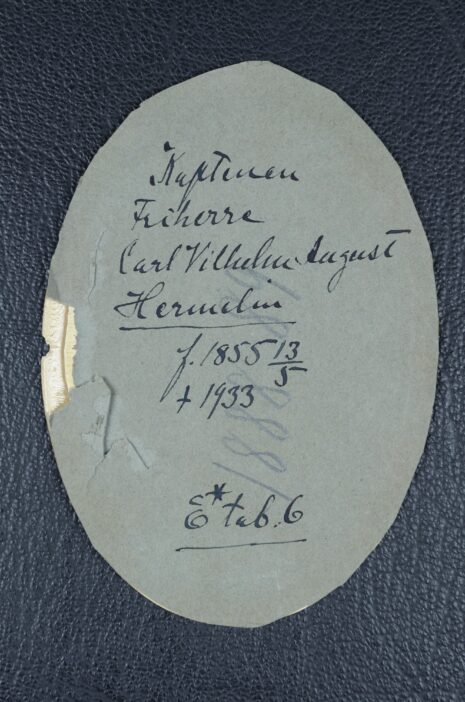 Kaptenen
Friherre
Carl Vilhelm August
Hermelin
f. 1855 13/5
† 1933
E* tab. 6